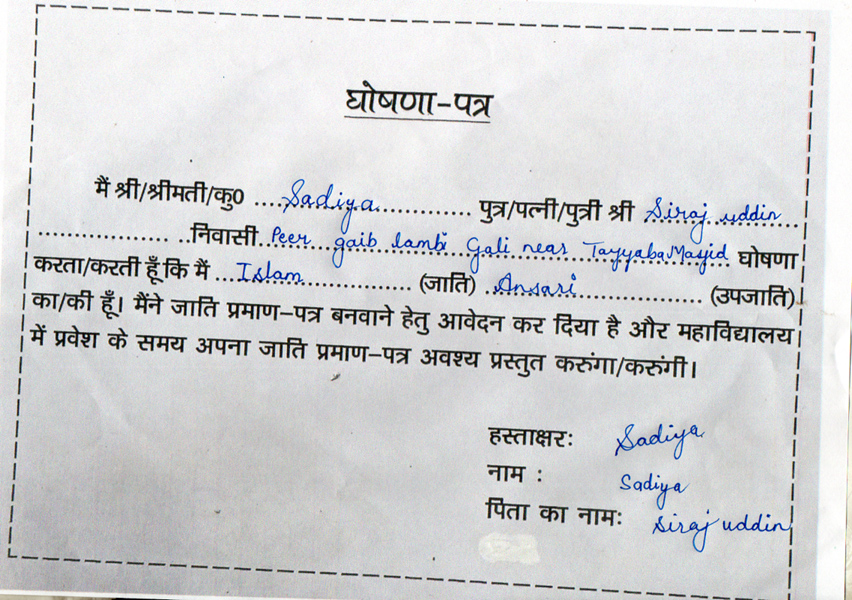 घोषणा-पत्र
मैं श्री/श्रीमती/कु0 ....Sadiya............... पुत्र/पत्नी/पुत्री श्री Siraj uddin
.................. ..निवासी..Peer gaib lambi Gali near Tayyaba Masjid घोषणा
करता/करती हूँ कि मैं ...Islam.................. (जाति) ..Ansari.................... (उपजाति)
का/की हूँ। मैंने जाति प्रमाण-पत्र बनवाने हेतु आवेदन कर दिया है और महाविद्यालय
में प्रवेश के समय अपना जाति प्रमाण-पत्र अवश्य प्रस्तुत करुंगा/करुंगी।
हस्ताक्षरः Sadiya
नाम : Sadiya
पिता का नामः Siraj uddin